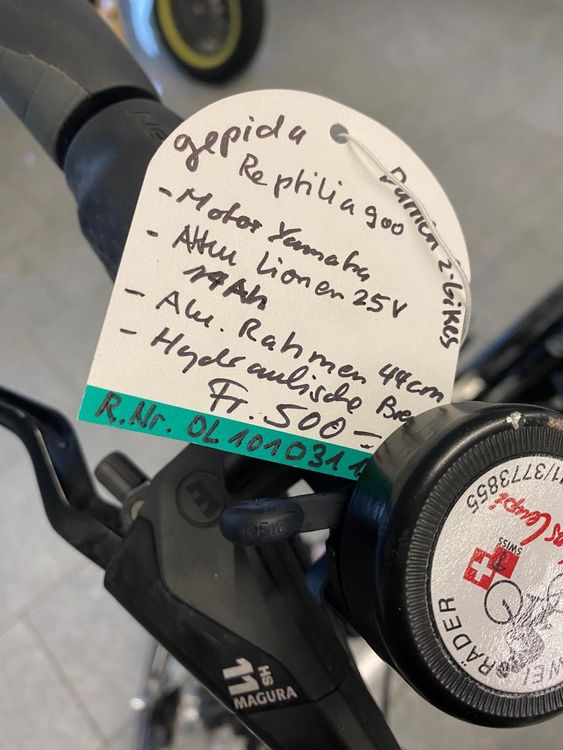 gepida
Reptilia 900
Damen z-bikes
- Motor Yamaha
- Akku Lionen 25V
14Ah
- Alu. Rahmen 44cm
- Hydraulische Bre
Fr. 500.-
R.Nr. OL101031
REIC
11
HS
MAGURA
11/3773855
SWISS
RÄDER